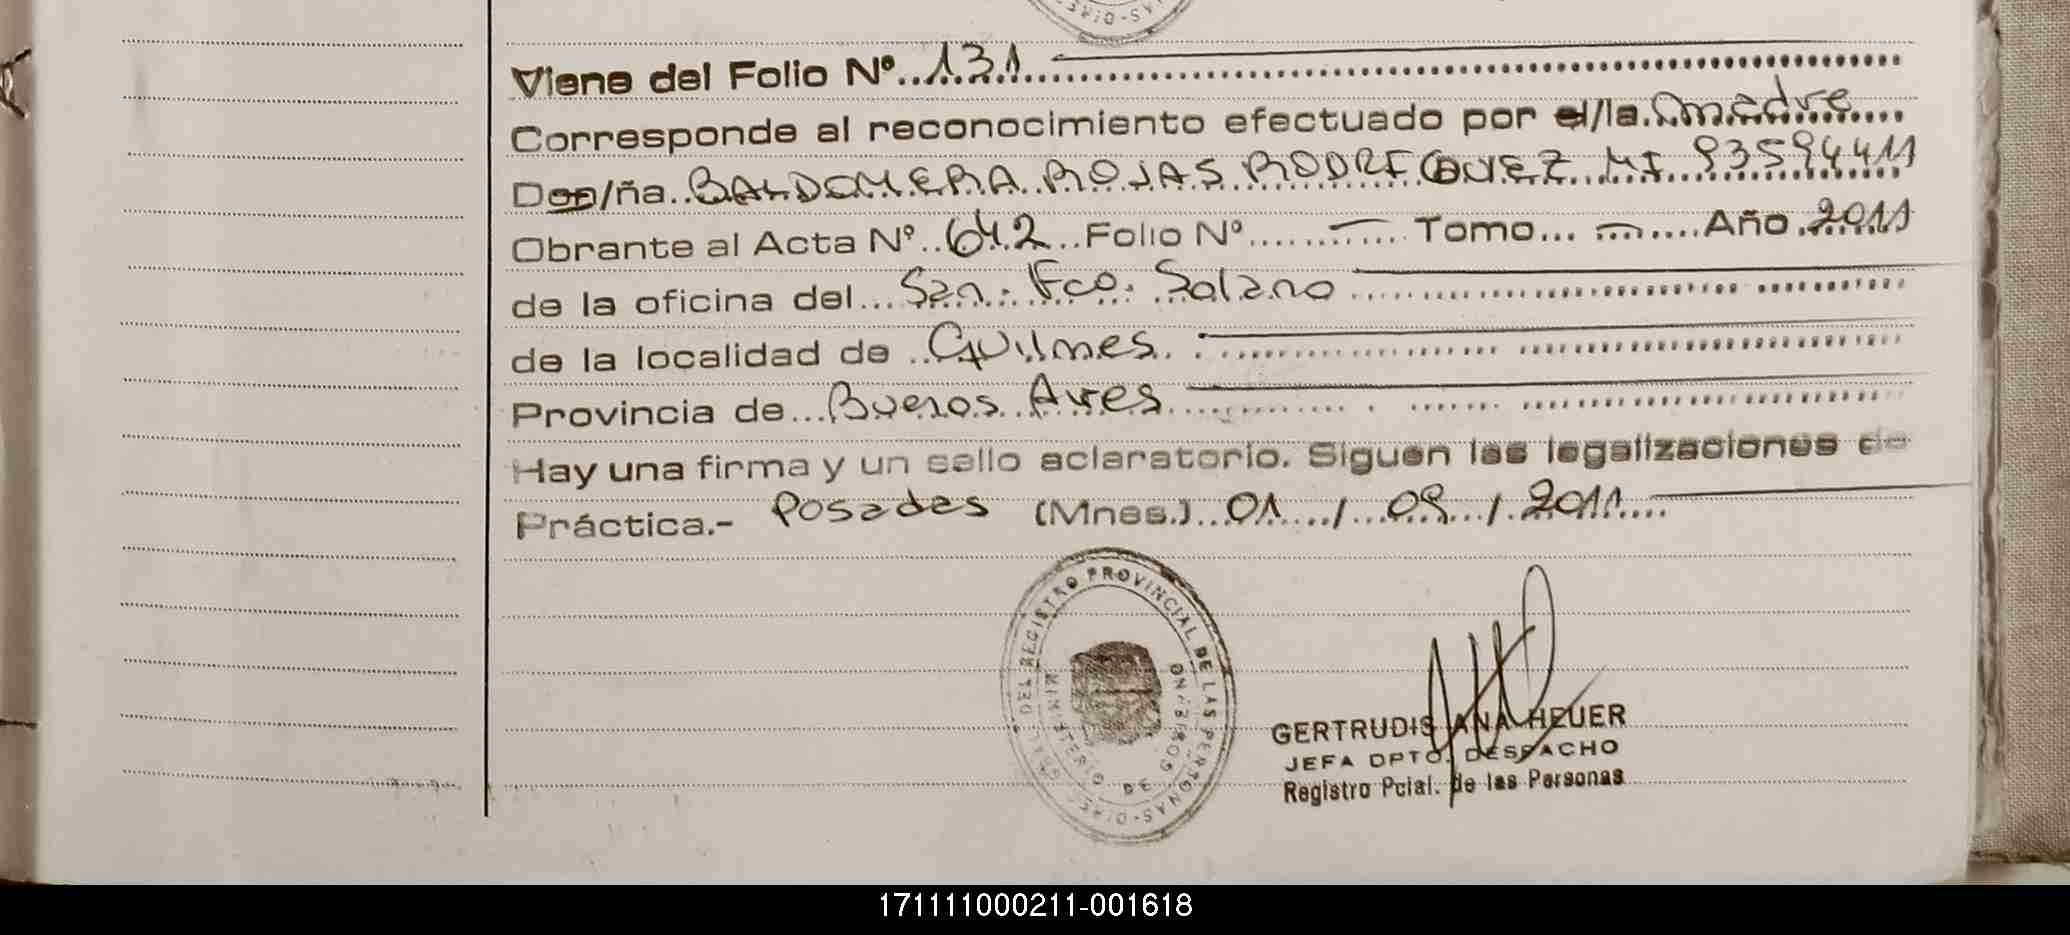 Viene del Folio Nº..131
Corresponde al reconocimiento efectuado por el/la madre
Don/ña..BALDOMERA ROJAS RODRIGUEZ MI 93594411
Obrante al Acta Nº..642...Folio Nº.......—..... Tomo... —.....Año.2011
de la oficina del...San Fco. Solano
de la localidad de ..Quilmes
Provincia de...Buenos Aires
Hay una firma y un sello aclaratorio. Siguen las legalizaciones de
Práctica.- Posadas (Mnes.)...01..../...09.../.2011....
GRAL. DEL REGISTRO PROVINCIAL DE LAS PERSONAS-DIREC
MINISTERIO DE GOBIERNO
GERTRUDIS ANA HEUER
JEFA DPTO. DESPACHO
Registro Pcial. de las Personas
171111000211-001618